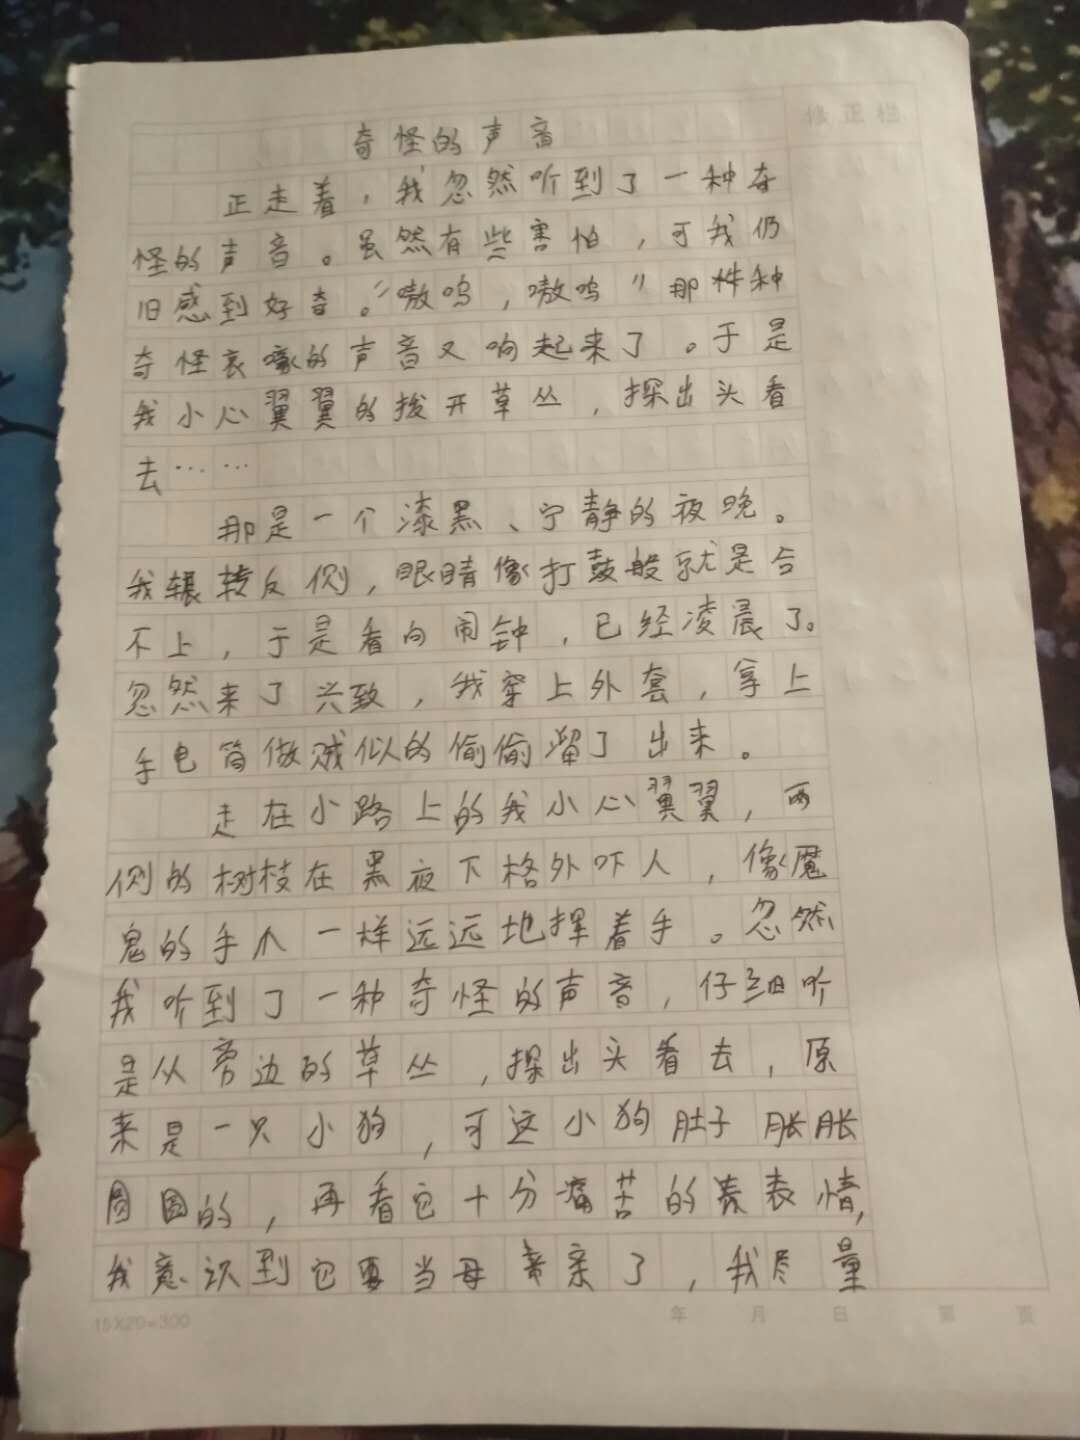 修正栏
奇怪的声音
正走着，我忽然听到了一种奇
怪的声音。虽然有些害怕，可我仍
旧感到好奇。“嗷呜，嗷呜”那种
奇怪哀嚎的声音又响起来了。于是
我小心翼翼的拨开草丛，探出头看
去……
那是一个漆黑、宁静的夜晚。
我辗转反侧，眼睛像打鼓般就是合
不上，于是看向闹钟，已经凌晨了。
忽然来了兴致，我穿上外套，拿上
手电筒做贼似的偷偷溜了出来。
走在小路上的我小心翼翼，两
侧的树枝在黑夜下格外吓人，像魔
鬼的手爪一样远远地挥着手。忽然
我听到了一种奇怪的声音，仔细听
是从旁边的草丛，探出头看去，原
来是一只小狗，可这小狗肚子胀胀
圆圆的，再看它十分痛苦的表情，
我意识到它要当母亲了，我尽量
15X20=300 年 月 日 第 页